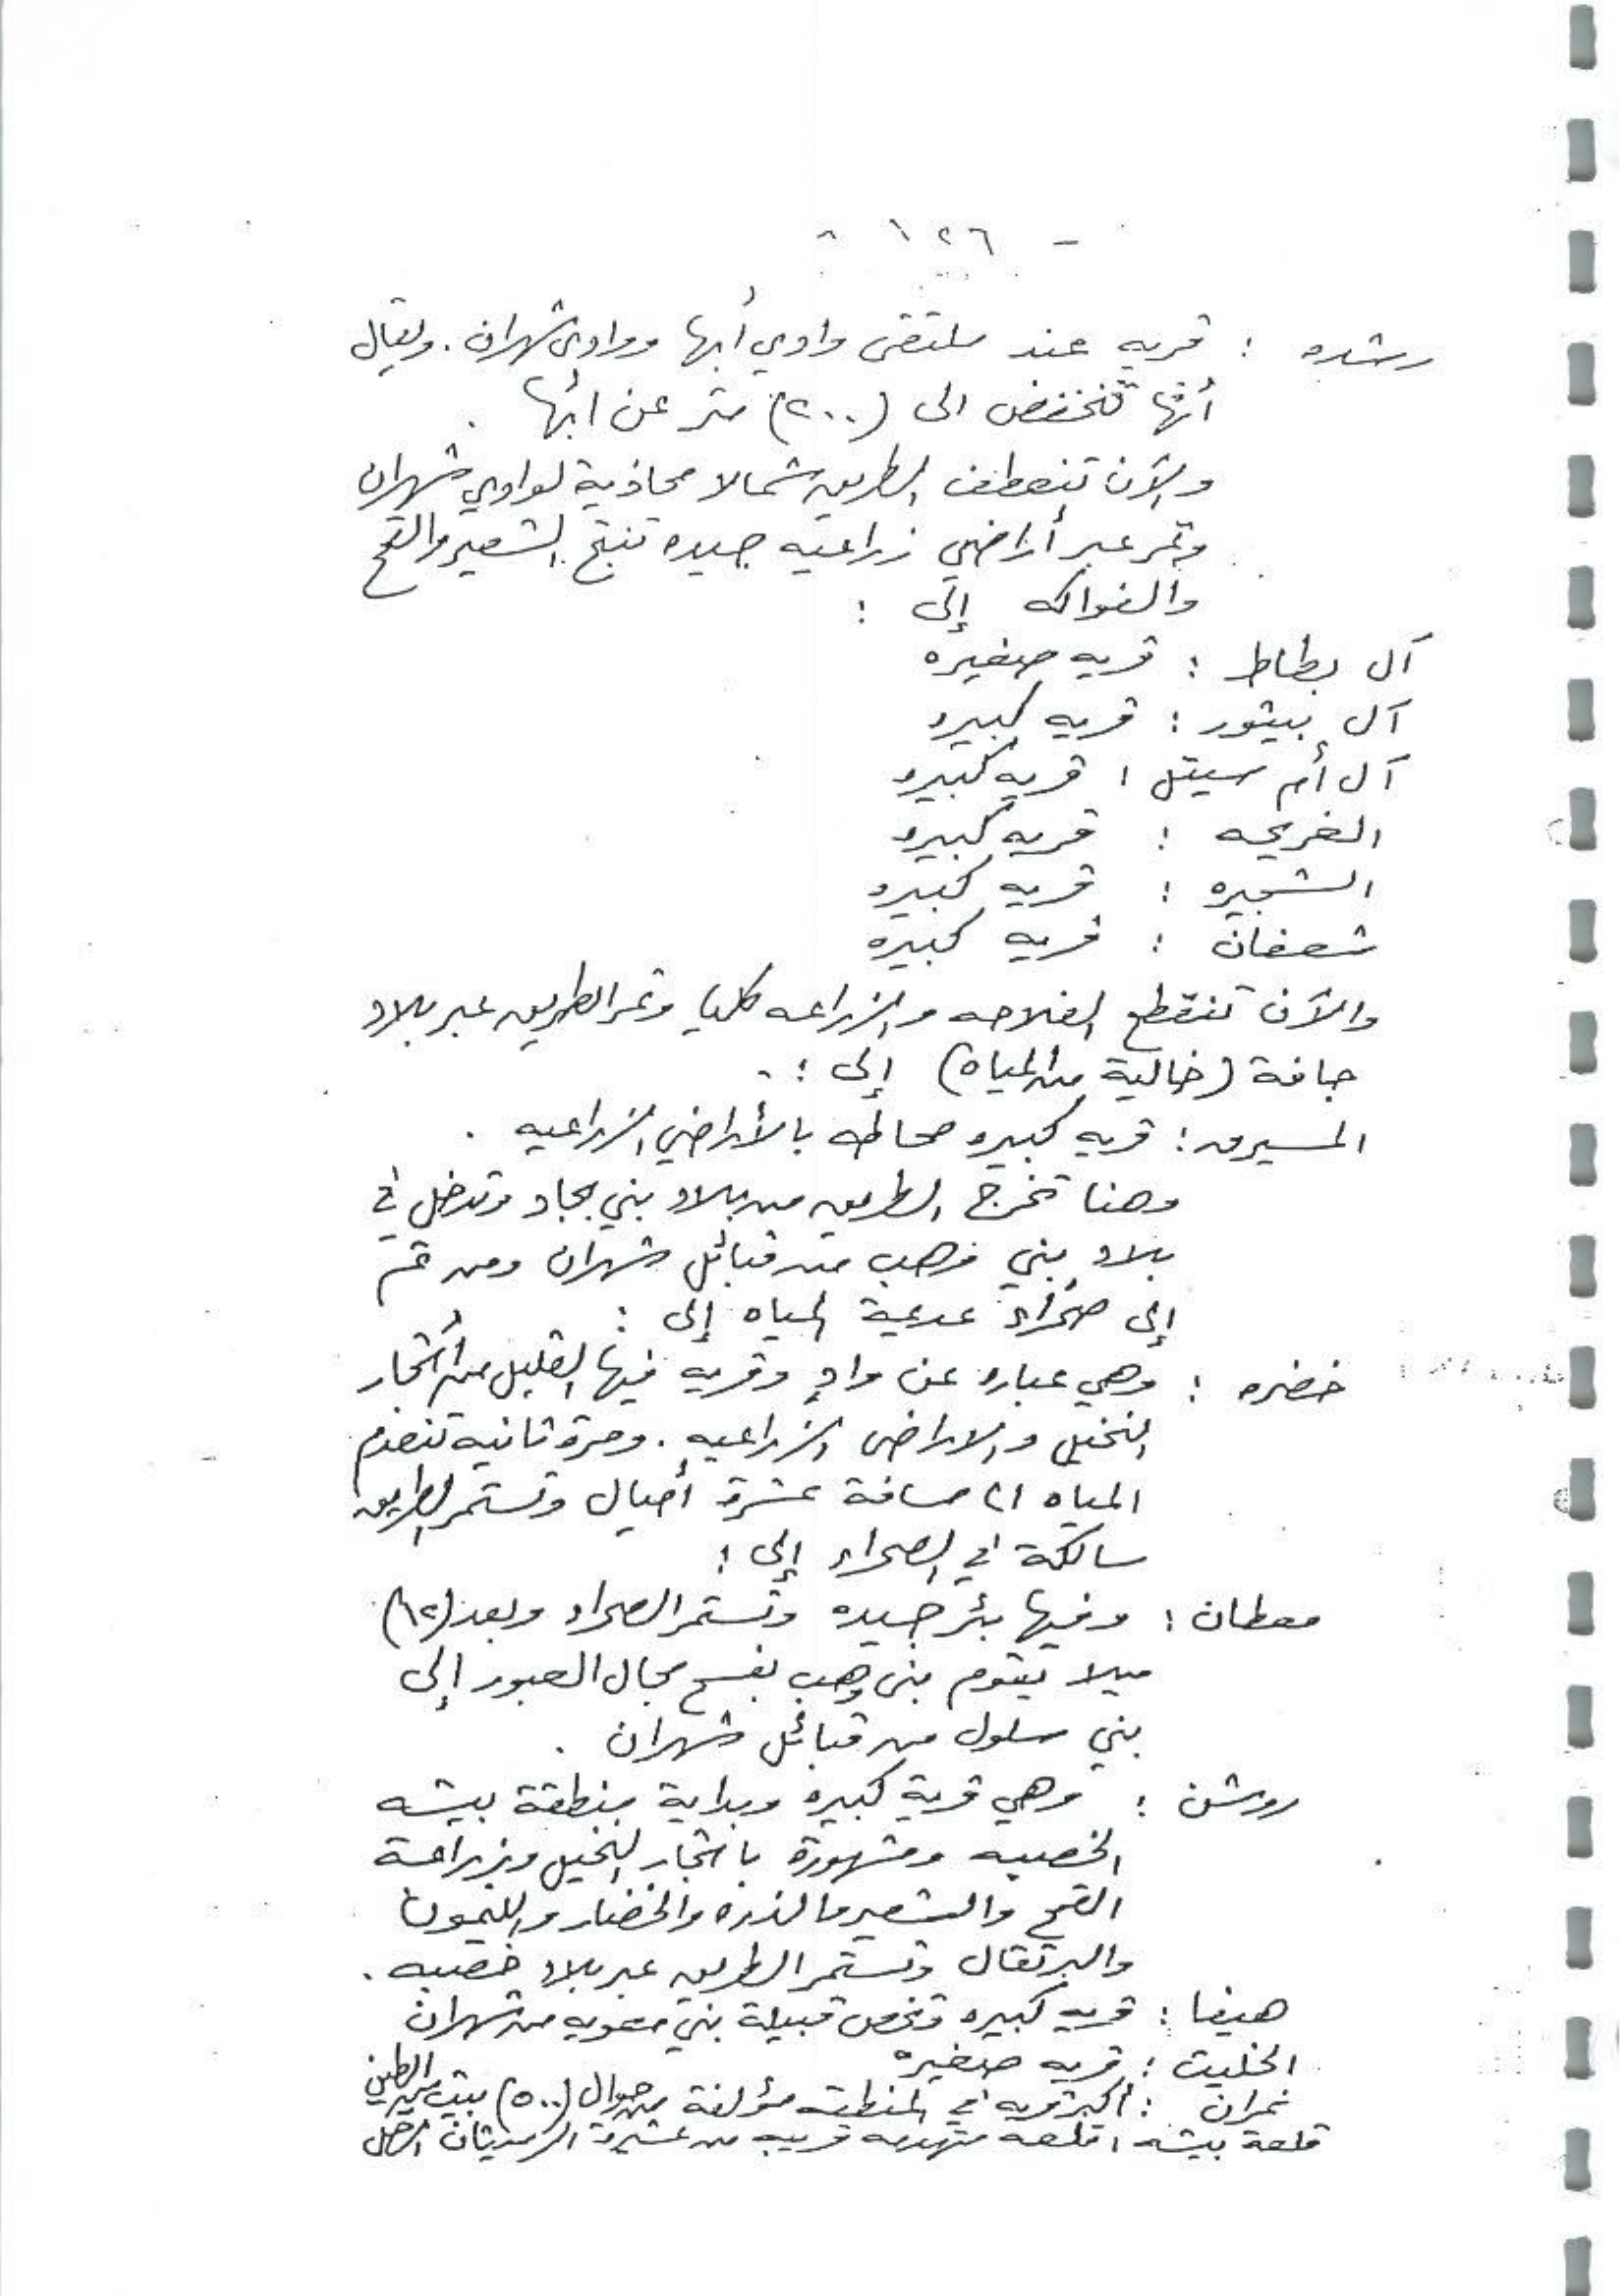 - ١٢٦ -
رشده : قريه عند ملتقى وادي أبها ووادي شهران . ويقال
أنها تنخفض الى (٢٠٠) متر عن ابها .
والآن تنعطف الطريق شمالا محاذية لوادي شهران
وتمر عبر أراضي زراعيه جيده تنتج الشعير والقمح
والفواكه إلى :
آل بطاط : قريه صغيره
آل بيثور : قريه كبيره
آل أم سيتل : قريه كبيره
الغريحه : قريه كبيره
الشجيره : قريه كبيره
شعفان : قريه كبيره
والآن تنقطع الفلاحه والزراعه كليا وتمر الطريق عبر بلاد
جافة (خالية من المياه) إلى :
المسيرق : قريه كبيره محاطه بالأراضي الزراعيه .
وهنا تخرج الطريق من بلاد بني بجاد وتدخل في
بلاد بني وهب من قبائل شهران ومن ثم
إلى صحراء عديمة المياه إلى :
خضره : وهي عباره عن وادٍ وقريه فيها القليل من أشجار
النخيل والاراضى الزراعيه . ومرة ثانيه تنعدم
المياه الى مسافة عشرة أميال وتستمر الطريق
سالكة في الصحراء إلى :
معطان : وفيها بئر جيده وتستمر الصحراء وبعد (١٢)
ميلا يقوم بنى وهب بفسح مجال العبور إلى
بني سلول من قبائل شهران .
روشن : وهي قرية كبيره وبداية منطقة بيشه
الخصبيه ومشهورة باشجار النخيل وبزراعة
القمح والشعير والذره والخضار والليمون
والبرتقال وتستمر الطريق عبر بلاد خصبيه .
هيفا : قريه كبيره وتخص قبيلة بني معويه من شهران
الخليت : قريه صغيره
نمران : أكبر قريه في المنطقه مؤلفة من حوالي (٥٠٠) بيت من الطين
قلعة بيشه : قلعه متهدمه قريبه من عشيرة الرمثان الرحل